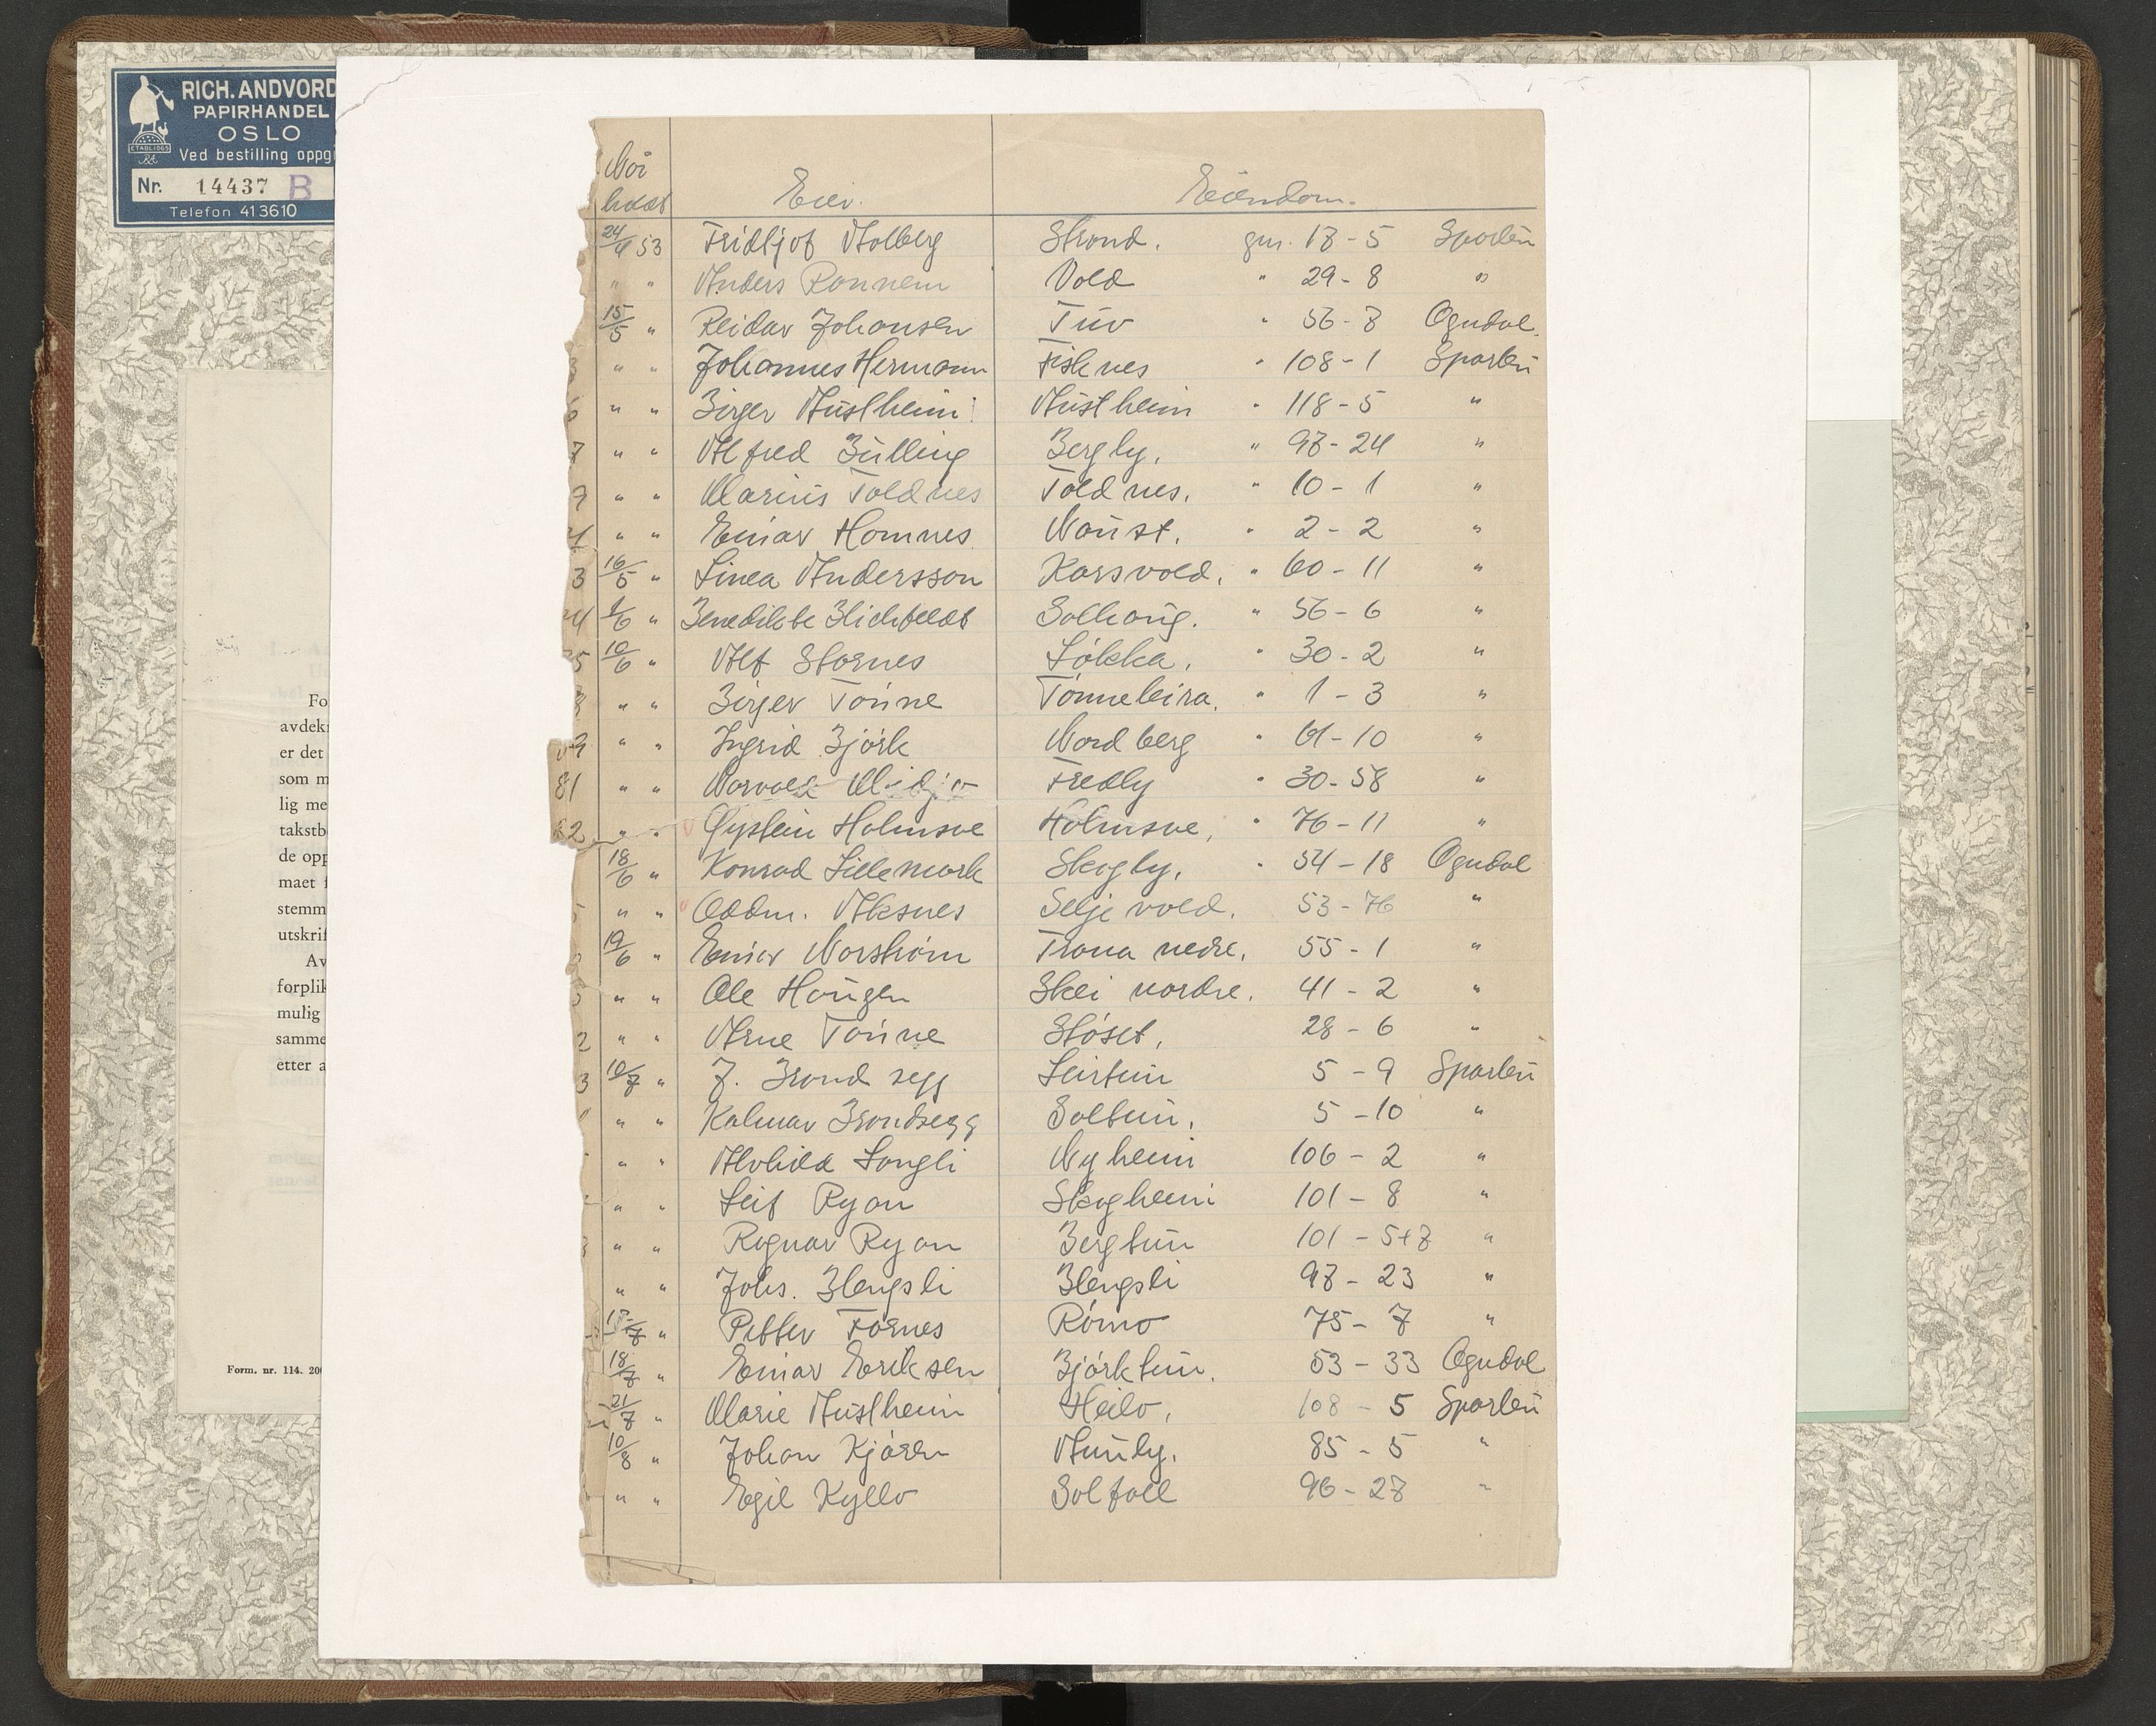 RICH. ANDVORD
PAPIRHANDEL
OSLO
ETABL. 1865
RA
Ved bestilling oppgi
Nr. 14437 B
Telefon 413610
Fo
avdek
er det
som m
lig me
takstb
de opp
maet
stemm
utskrif
Av
forplik
mulig
samme
etter a
Form. nr. 114. 20
Når
Eier. Eiendom.
24/4 53 Fridtjof Aalberg Strand. gnr. 17-5 Sparbu
" " Anders Rannem Vold " 29-8 "
15/5 " Reidar Johansen Tuv " 56-7 Ogndal.
3 " " Johannes Hermann Fisknes " 108-1 Sparbu
6 " " Birger Austheim Austheim " 118-5 "
7 " " Alfred Bulling Bergly. " 97-24 "
9 " " Marius Toldnes Toldnes. " 10-1 "
" " Einar Homnes Naust. " 2-2 "
3 16/5 " Linea Andersson Karsvold. " 60-11 "
/6 " Benedikte Blichfeldt Solhaug. " 56-6 "
5 10/6 " Alf Stornes Løkka. " 30-2 "
" " Birger Tønne Tønneleira. " 1-3 "
" " Ingrid Bjørk Nordberg " 61-10 "
81 " " Norvald Midjo Fredly " 30-58 "
82 " " V Øystein Holmsve Holmsve. " 76-11 "
18/6 " Konrad Lillemark Skogly. " 54-18 Ogndal
" " Oddm. Aksnes Seljevold. 53-76 "
19/6 " Einar Norstrøm Trana nedre. 55-1 "
" " Ole Haugen Skei nordre. 41-2 "
2 " " Arne Tønne Støset. 28-6 "
3 10/7 " J. Brandsegg Leirtun 5-9 Sparbu
" " Kalmar Brandsegg Soltun. 5-10 "
" " Alvhild Langli Nyheim 106-2 "
" " Leif Ryan Skogheim 101-8 "
" " Ragnar Ryan Bergtun 101-5+7 "
" " Johs. Blengsli Blengsli 97-23 "
/7 " Petter Fornes Rømo 75-7 "
18/7 " Einar Eriksen Bjørktun. 53-33 Ogndal
21/7 " Marie Austheim Heilo. 108-5 Sparbu
10/8 " Johan Kjøren Aunly. 85-5 "
" " Egil Kyllo Solfall 96-27 "